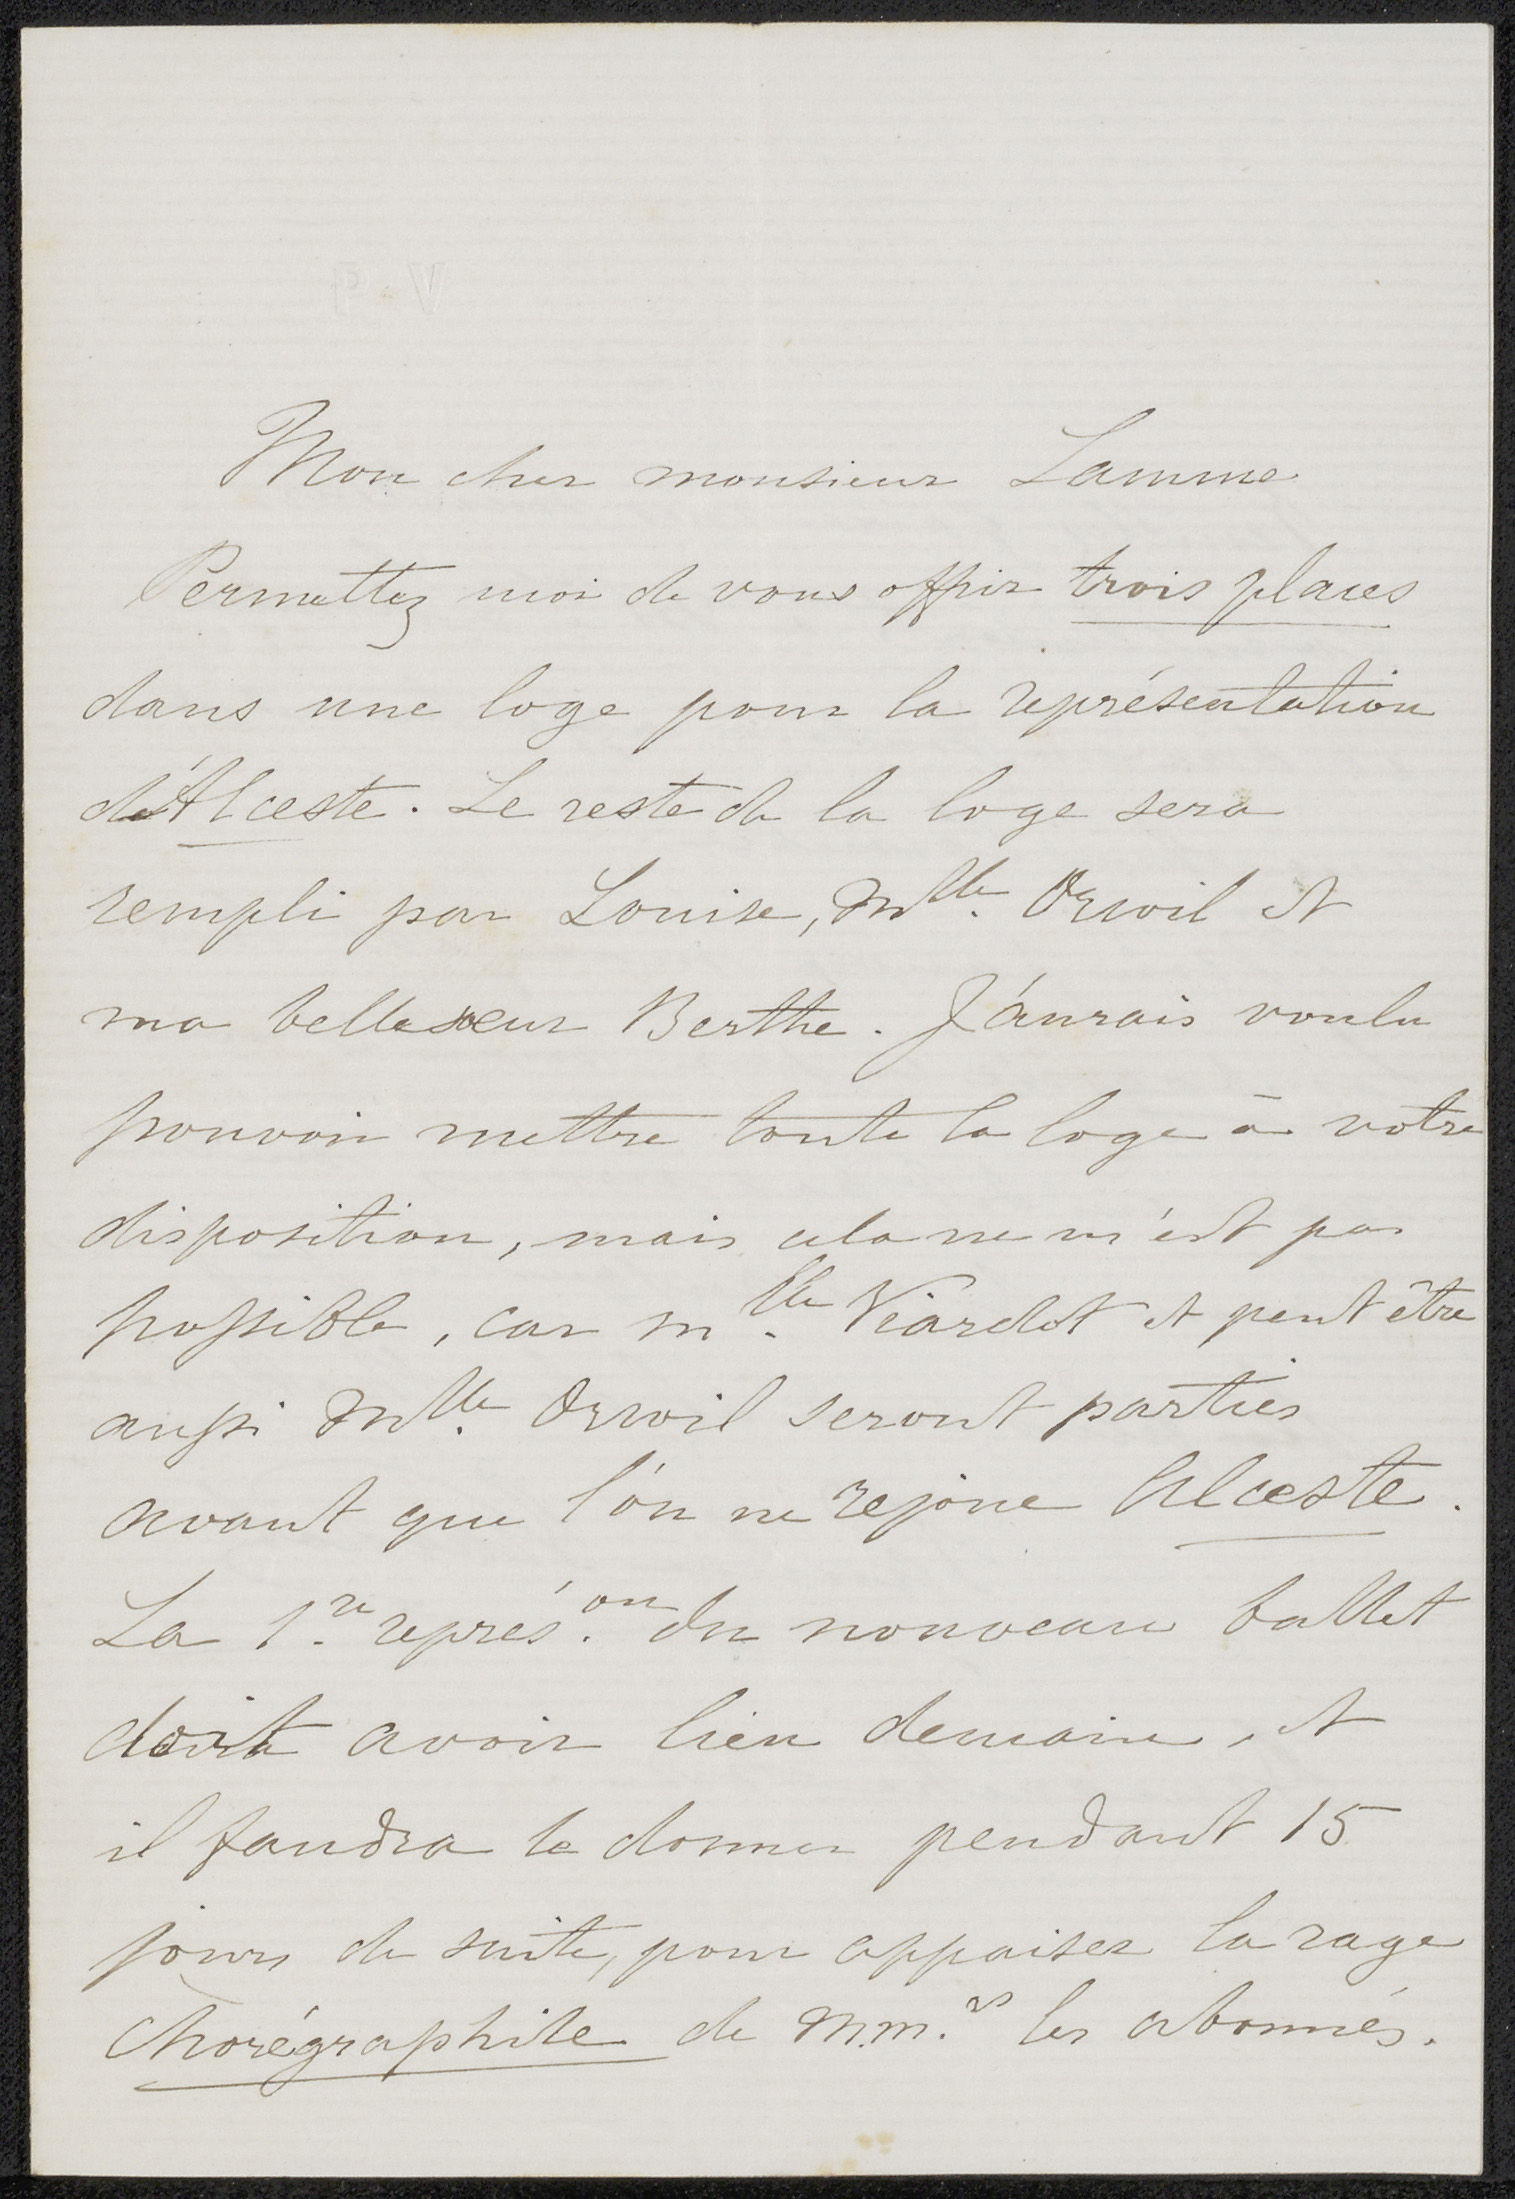 Mon cher monsieur Lamme
Permettez moi de vous offrir trois places
dans une loge pour la représentation
d'Alceste. Le reste de la loge sera
rempli par Louise, Mlle. Orwil et
ma bellesoeur Berthe. J'aurais voulu
pouvoir mettre toute la loge à votre
disposition, mais cela ne m'est pas
possible, car Mlle. Viardot et peut être
aussi Mlle. Orwil seront parties
avant que l'on ne rejoue Alceste.
La 1.re représ.on du nouveau ballet
doit avoir lieu demain, et
il faudra le donner pendant 15
jours de suite, pour appaiser la rage
chorégraphile de M.M.rs les abonnés.